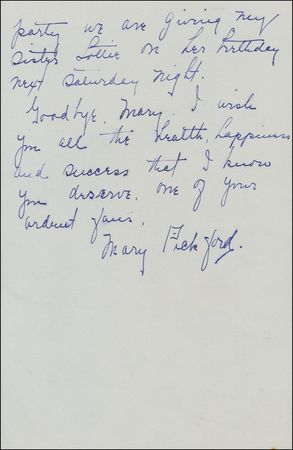 party we are giving my
sister Lottie on her birthday
next Saturday night.
Goodbye, Mary, I wish
you all the health, happiness
and success that I know
you deserve. One of your
ardent fans.
Mary Pickford.